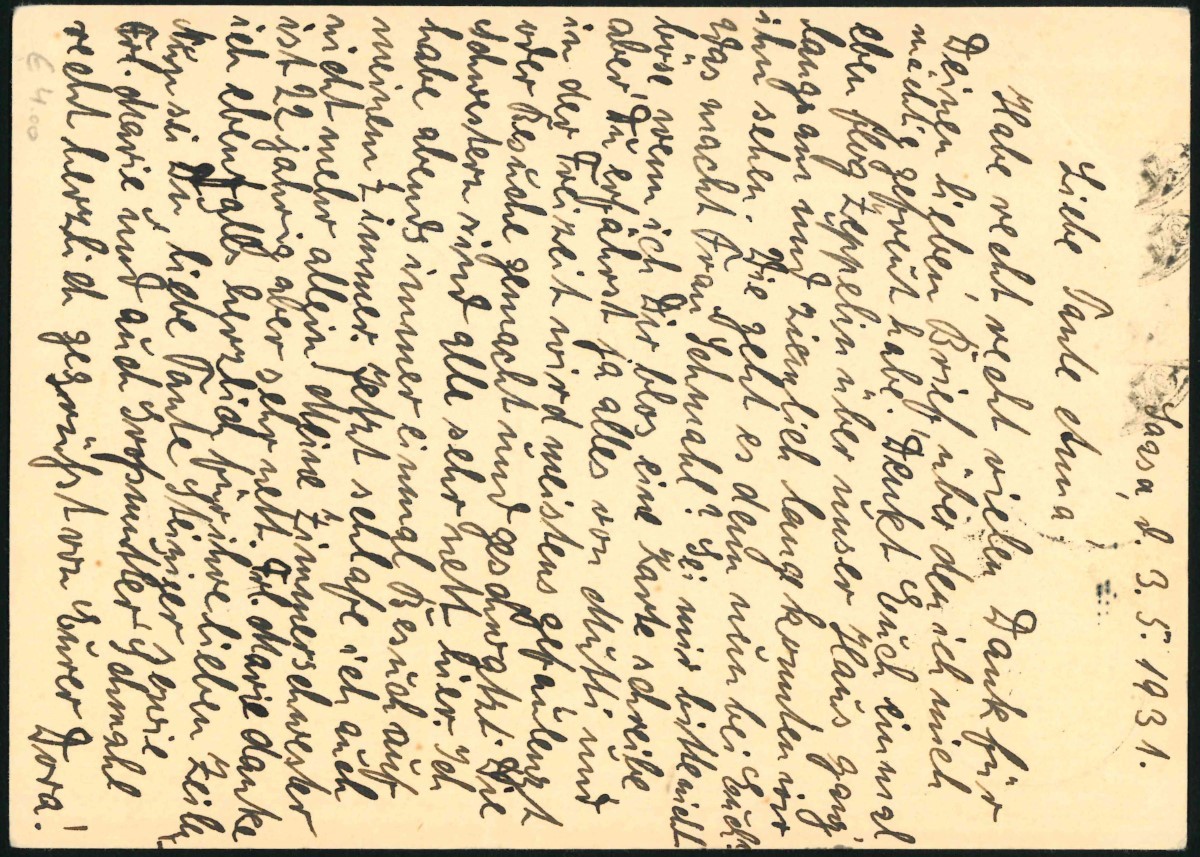 d. 3. 5. 1931.
Liebe Tante Anna!
Habe recht recht vielen Dank für
Deinen lieben Brief, über den ich mich
mächtig gefreut habe. Denkt Euch einmal
eben flog Zeppelin über unser Haus ganz
langsam und ziemlich lang konnten wir
ihn sehen. Wie geht es denn nun bei Euch.
Was macht Frau Schmahl? Sei mir bitte nicht
böse wenn ich Dir blos eine Karte schreibe
aber Du erfährst ja alles von Mutti und
in der Freizeit wird meistens gefaulenzt
oder Besuche gemacht und geschwatzt. Die
Schwestern sind alle sehr nett hier. Ich
habe abends immer einmal Besuch auf
meinem Zimmer. Jetzt schlafe ich auch
nicht mehr allein. Meine Zimmerschwester
ist 22 jährig aber sehr nett. Frl. Marie danke
ich ebenfalls herzlich für ihre lieben Zeilen
Nun sei Du liebe Tante
Frl. Marie und auch Großmutter Schmahl
recht herzlich gegrüßt von Eurer Dora!
€ 4.00